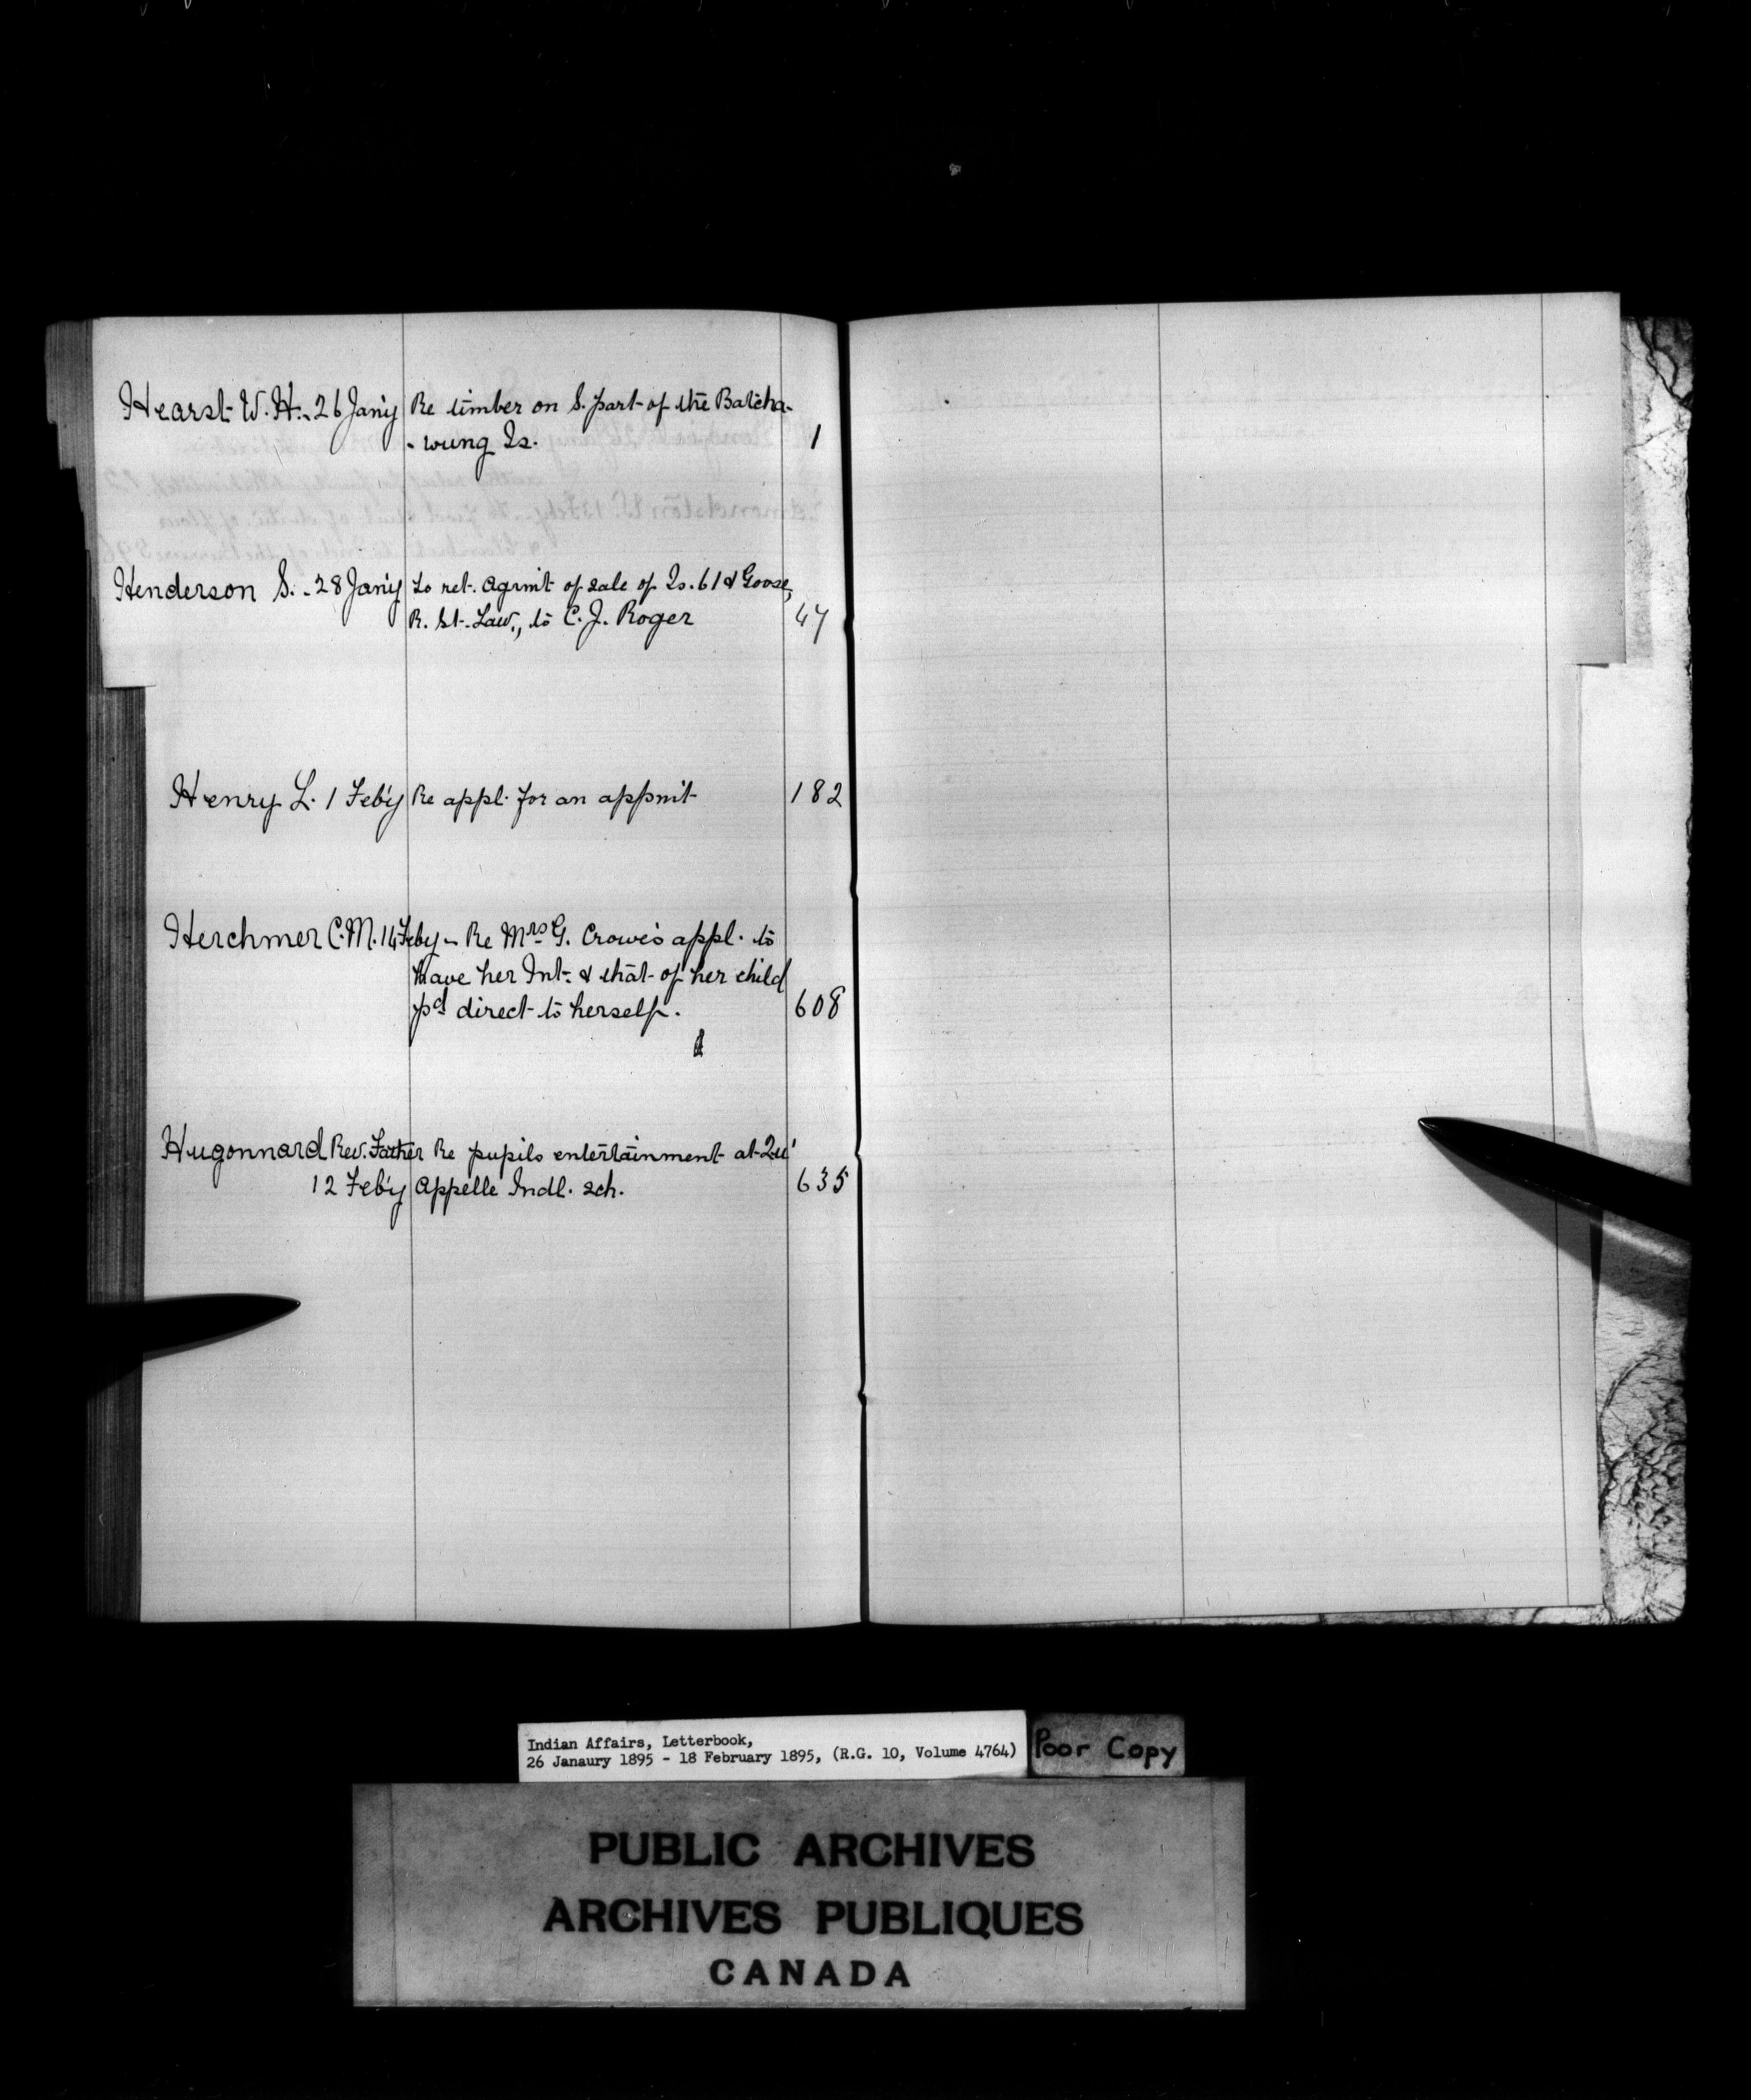 Hearst W. H. - 26 Jan'y Re timber on S. part of the Batcha-
- wung Is. 1
Henderson S. - 28 Jan'y To ret. agrmt of sale of Is. 61 & Goose,
R. St. Law., to C. J. Roger 47
Henry L. 1 Feb'y Re appl. for an appmt 182
Herchmer C. M. 14 Feby - Re Mrs G. Crowe's appl. to
have her Int. & that of her child
pd direct to herself. 608
Hugonnard Rev. Father Re pupils entertainment at Qu'
12 Feb'y Appelle Indl. sch. 635
Indian Affairs, Letterbook,
26 Janaury 1895 - 18 February 1895, (R.G. 10, Volume 4764)
Poor Copy
PUBLIC ARCHIVES
ARCHIVES PUBLIQUES
CANADA